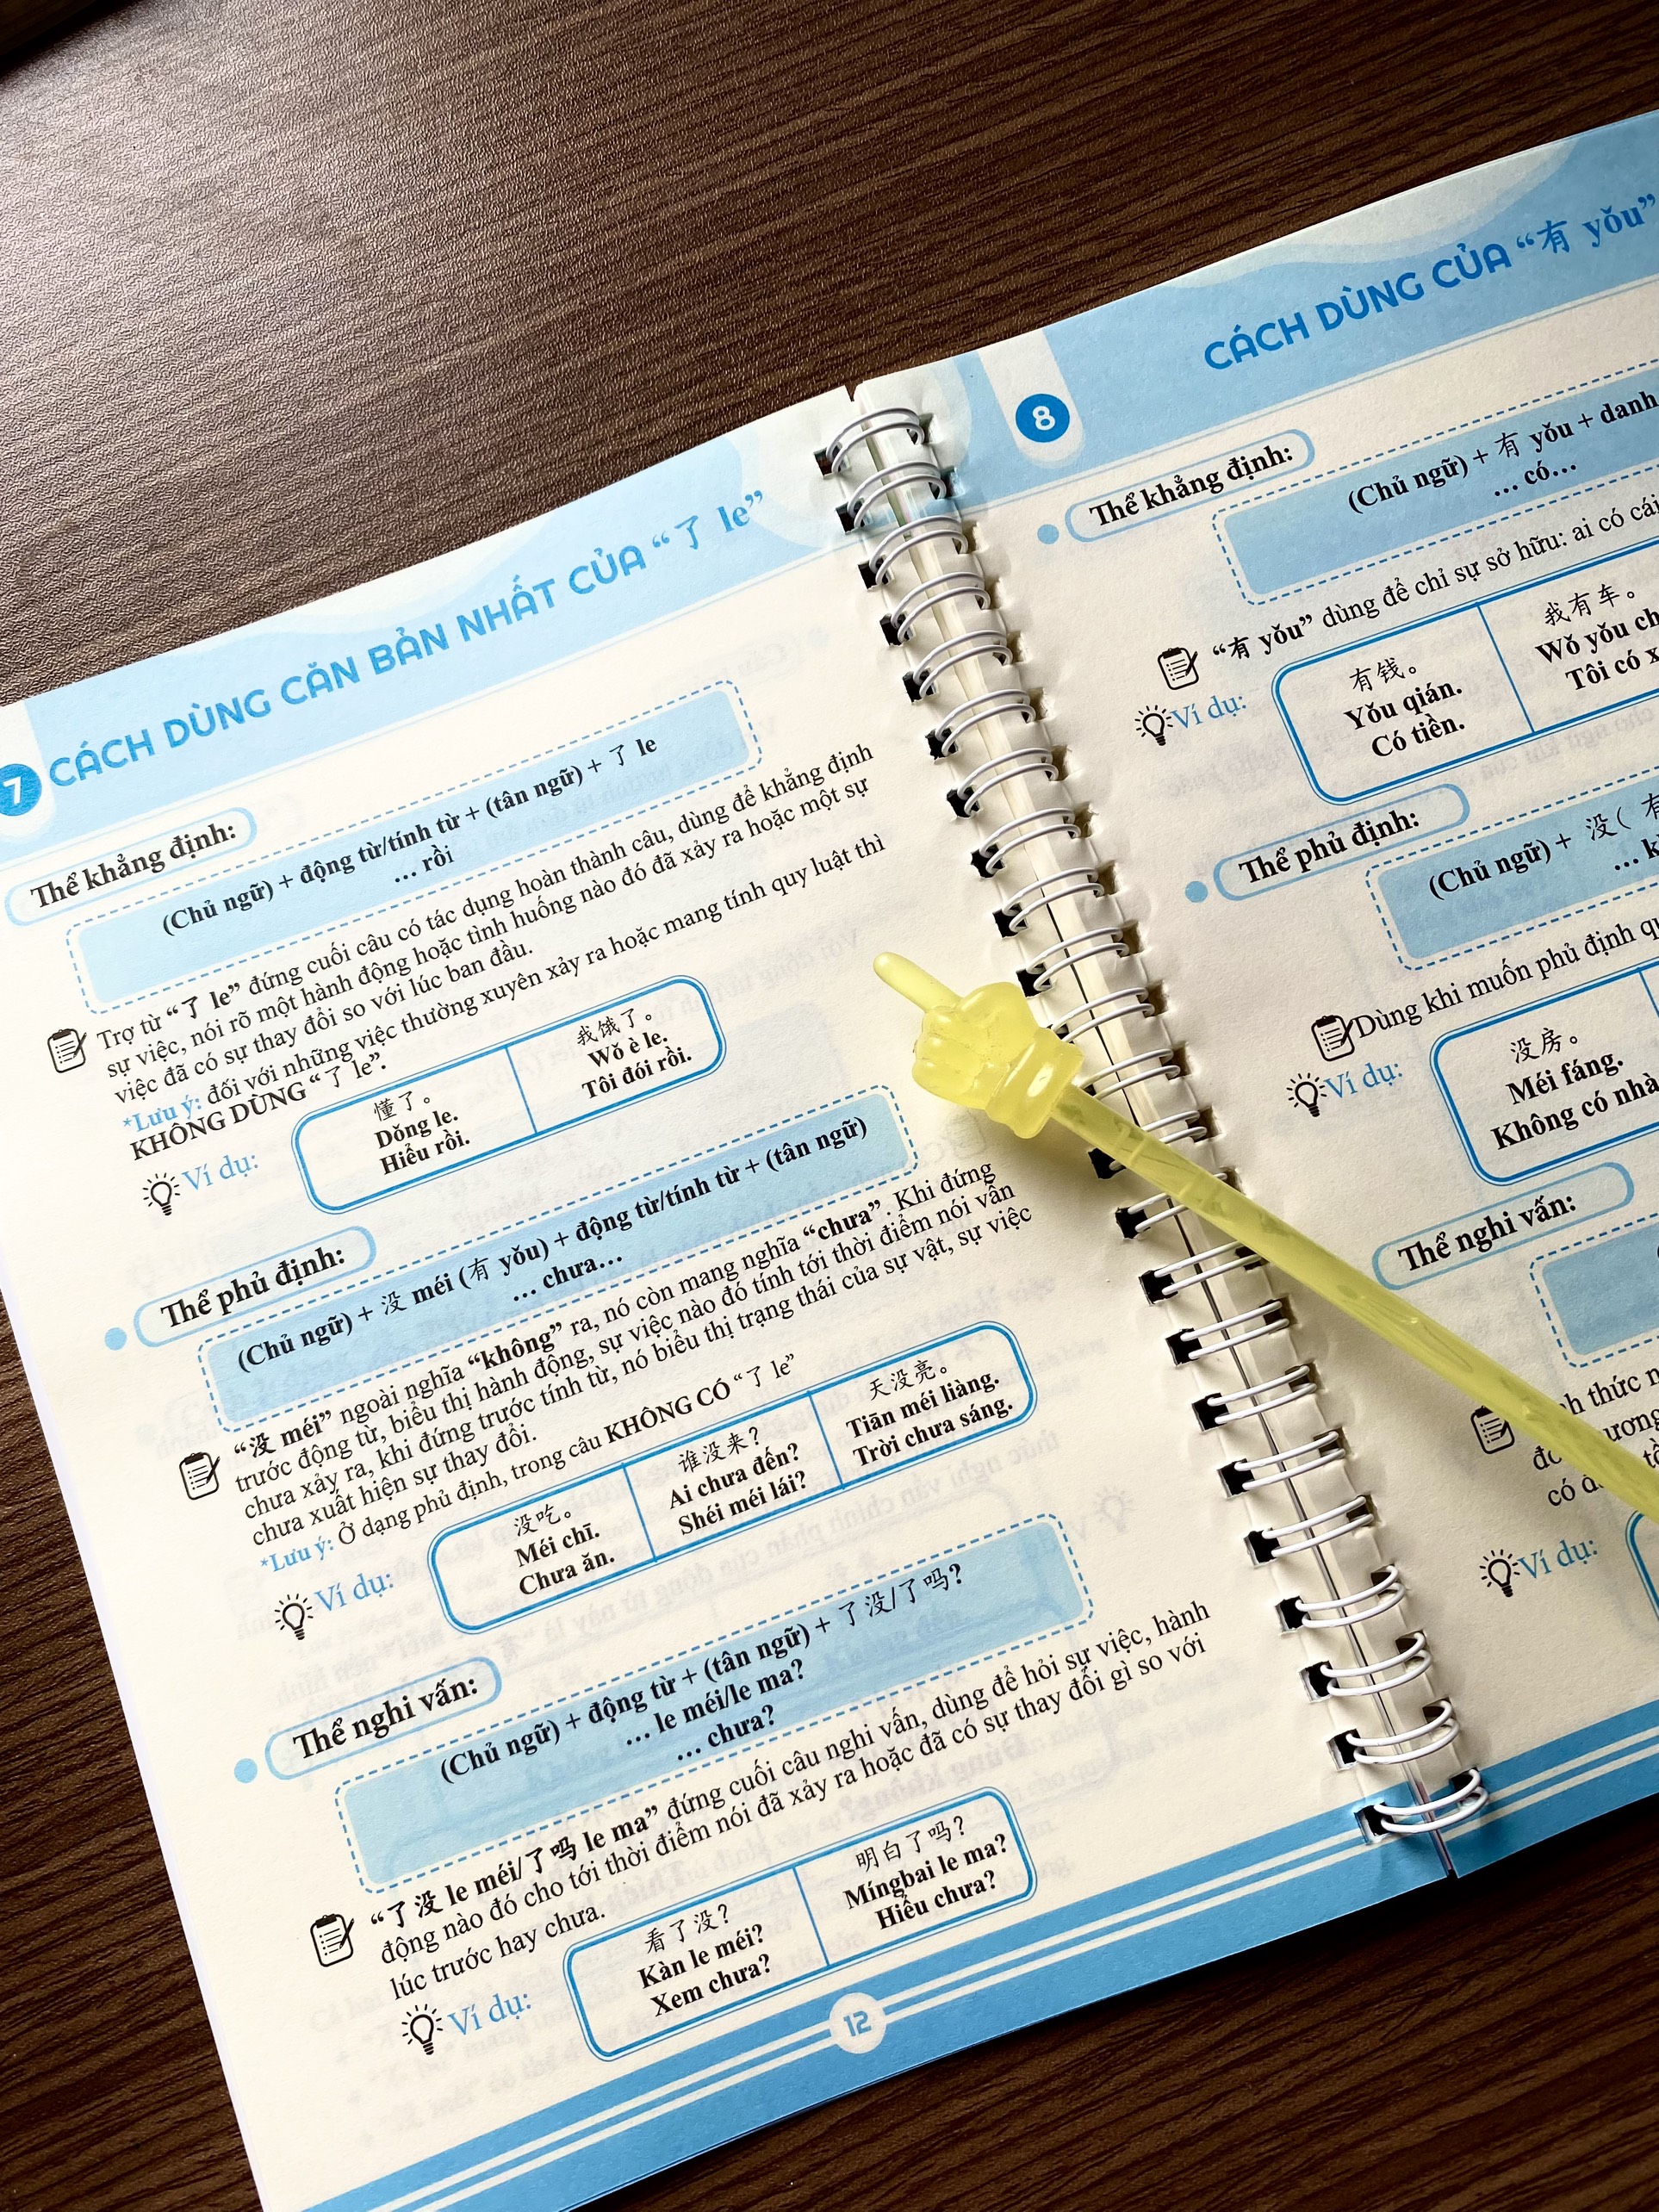 7 CÁCH DÙNG CĂN BẢN NHẤT CỦA “了 le”
Thể khẳng định:
(Chủ ngữ) + động từ/tính từ + (tân ngữ) + 了 le
... rồi
Trợ từ “了 le” đứng cuối câu có tác dụng hoàn thành câu, dùng để khẳng định
sự việc, nói rõ một hành động hoặc tình huống nào đó đã xảy ra hoặc một sự
việc đã có sự thay đổi so với lúc ban đầu.
*Lưu ý: đối với những việc thường xuyên xảy ra hoặc mang tính quy luật thì
KHÔNG DÙNG “了 le”.
Ví dụ:
懂了。
Dǒng le.
Hiểu rồi.
我饿了。
Wǒ è le.
Tôi đói rồi.
Thể phủ định:
(Chủ ngữ) + 没 méi (有 yǒu) + động từ/tính từ + (tân ngữ)
... chưa...
“没 méi” ngoài nghĩa “không” ra, nó còn mang nghĩa “chưa”. Khi đứng
trước động từ, biểu thị hành động, sự việc nào đó tính tới thời điểm nói vẫn
chưa xảy ra, khi đứng trước tính từ, nó biểu thị trạng thái của sự vật, sự việc
chưa xuất hiện sự thay đổi.
*Lưu ý: Ở dạng phủ định, trong câu KHÔNG CÓ “了 le”
Ví dụ:
没吃。
Méi chī.
Chưa ăn.
谁没来?
Ai chưa đến?
Shéi méi lái?
天没亮。
Tiān méi liàng.
Trời chưa sáng.
Thể nghi vấn:
(Chủ ngữ) + động từ + (tân ngữ) + 了没/了吗?
... le méi/le ma?
... chưa?
“了没 le méi/了吗 le ma” đứng cuối câu nghi vấn, dùng để hỏi sự việc, hành
động nào đó cho tới thời điểm nói đã xảy ra hoặc đã có sự thay đổi gì so với
lúc trước hay chưa.
Ví dụ:
看了没?
Kàn le méi?
Xem chưa?
明白了吗?
Míngbai le ma?
Hiểu chưa?
12
8 CÁCH DÙNG CỦA “有 yǒu”
Thể khẳng định:
(Chủ ngữ) + 有 yǒu + danh
... có...
“有 yǒu” dùng để chỉ sự sở hữu: ai có cái
Ví dụ:
有钱。
Yǒu qián.
Có tiền.
我有车。
Wǒ yǒu ch
Tôi có x
Thể phủ định:
(Chủ ngữ) + 没( 有
... k
Dùng khi muốn phủ định
Ví dụ:
没房。
Méi fáng.
Không có nhà
Thể nghi vấn:
thức
ương
có
Ví dụ: